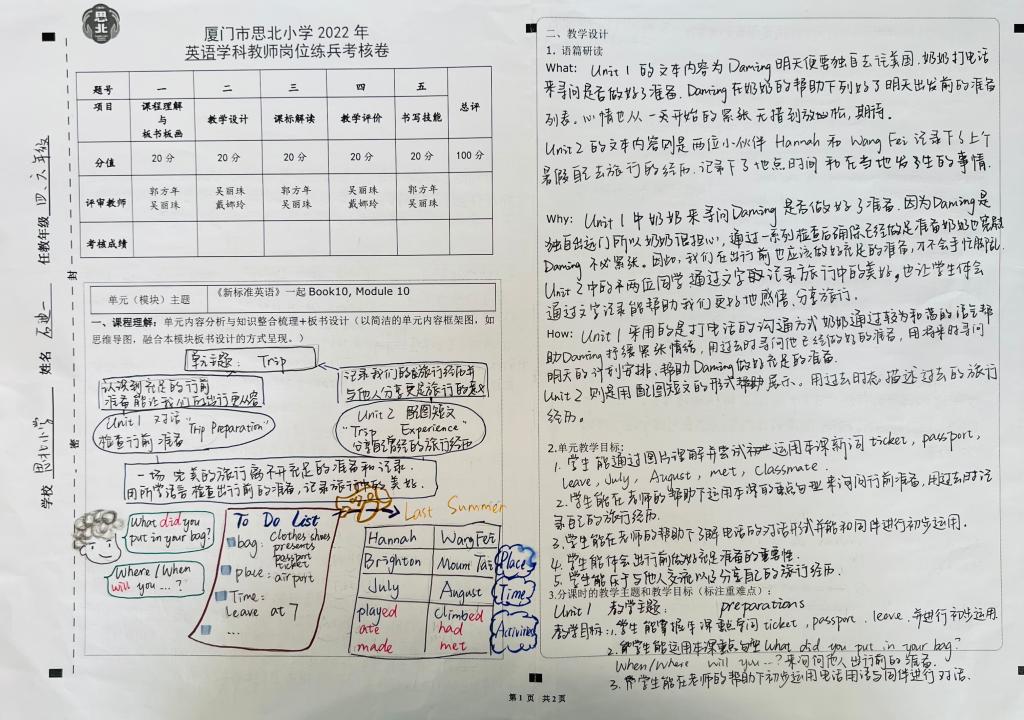 思北
厦门市思北小学 2022 年
英语学科教师岗位练兵考核卷
题号 一 二 三 四 五 总评
项目 课程理解与板书板画 教学设计 课标解读 教学评价 书写技能
分值 20 分 20 分 20 分 20 分 20 分 100 分
评审教师 郭方年 吴丽珠 吴丽珠 戴娜玲 郭方年 吴丽珠 吴丽珠 戴娜玲 郭方年 吴丽珠
考核成绩
学校 思北小学 姓名 任教年级 四、六年级
密
封
单元（模块）主题 《新标准英语》一起 Book10, Module 10
一、课程理解：单元内容分析与知识整合梳理+板书设计（以简洁的单元内容框架图，如
思维导图，融合本模块板书设计的方式呈现。）
单元主题： Trip
认识到充足的行前
准备能让我们的出行更从容
记录我们的旅行经历并
与他人分享更是旅行的意义
Unit 1 对话
"Trip Preparation"
检查行前准备
Unit 2 配图短文
"Trip Experience"
分享自己曾经的旅行经历
一场完美的旅行离不开充足的准备和记录.
用所学语言检查出行前的准备,记录旅行中的美好.
What did you
put in your bag?
Where/When
will you ... ?
To Do List
bag: clothes shoes
presents
passport
ticket
place: airport
Time:
leave at 7
...
Last Summer
Hannah Wang Fei
Brighton Mount Tai Place
July August Time
played climbed
ate had Activities
made met
二、教学设计
1. 语篇研读
What: Unit 1 的文本内容为 Daming 明天便要独自去往美国.奶奶打电话
来寻问是否做好了准备. Daming 在奶奶的帮助下列好了明天出发前的准备
列表。心情也从一开始的紧张无措到放松,期待.
Unit 2 的文本内容则是两位小伙伴 Hannah 和 Wang Fei 记录下了上个
暑假自己去旅行的经历.记录下了地点时间和在当地发生的事情.
Why: Unit 1 中奶奶来寻问 Daming 是否做好了准备.因为 Daming 是
独自出远门所以奶奶很担心,通过一系列检查后确保已经做足准备奶奶也宽慰
Daming 不必紧张。因此,我们在出行前也应该做好充足的准备,才不会手忙脚乱.
Unit 2 中的两位同学通过文字记录了旅行中的美好。也让学生体会
通过文字记录能帮助我们更好地感悟、分享旅行.
How: Unit 1 采用的是打电话的沟通方式奶奶通过较为和蔼的语气帮
助 Daming 抒缓紧张情绪,用过去时寻问他已经做好的准备,用将来时寻问
明天的计划安排,帮助 Daming 做好充足的准备.
Unit 2 则是用配图短文的形式帮助展示。用过去时态描述过去的旅行
经历。
2.单元教学目标：
1. 学生能通过图片理解并尝试初步运用本课新词 ticket, passport,
leave, July, August, met, classmate.
2. 学生能在老师的帮助下运用本课重点句型来询问行前准备,用过去时记
录自己的旅行经历.
3. 学生能在老师的帮助下了解电话的对话形式并能和同伴进行初步运用.
4. 学生能体会出行前做好充足准备的重要性.
5. 学生能乐于与他人交流以及分享自己的旅行经历.
3.分课时的教学主题和教学目标（标注重难点）：
Unit 1 教学主题: preparations
教学目标: 1. 学生能掌握本课重点单词 ticket, passport, leave,并进行初步运用
2. 学生能运用本课重点句型 What did you put in your bag?
When/Where will you ...? 来询问他人出行前的准备.
3. 学生能在老师的帮助下初步运用电话用语与同伴进行对话.
第 1 页 共 2 页